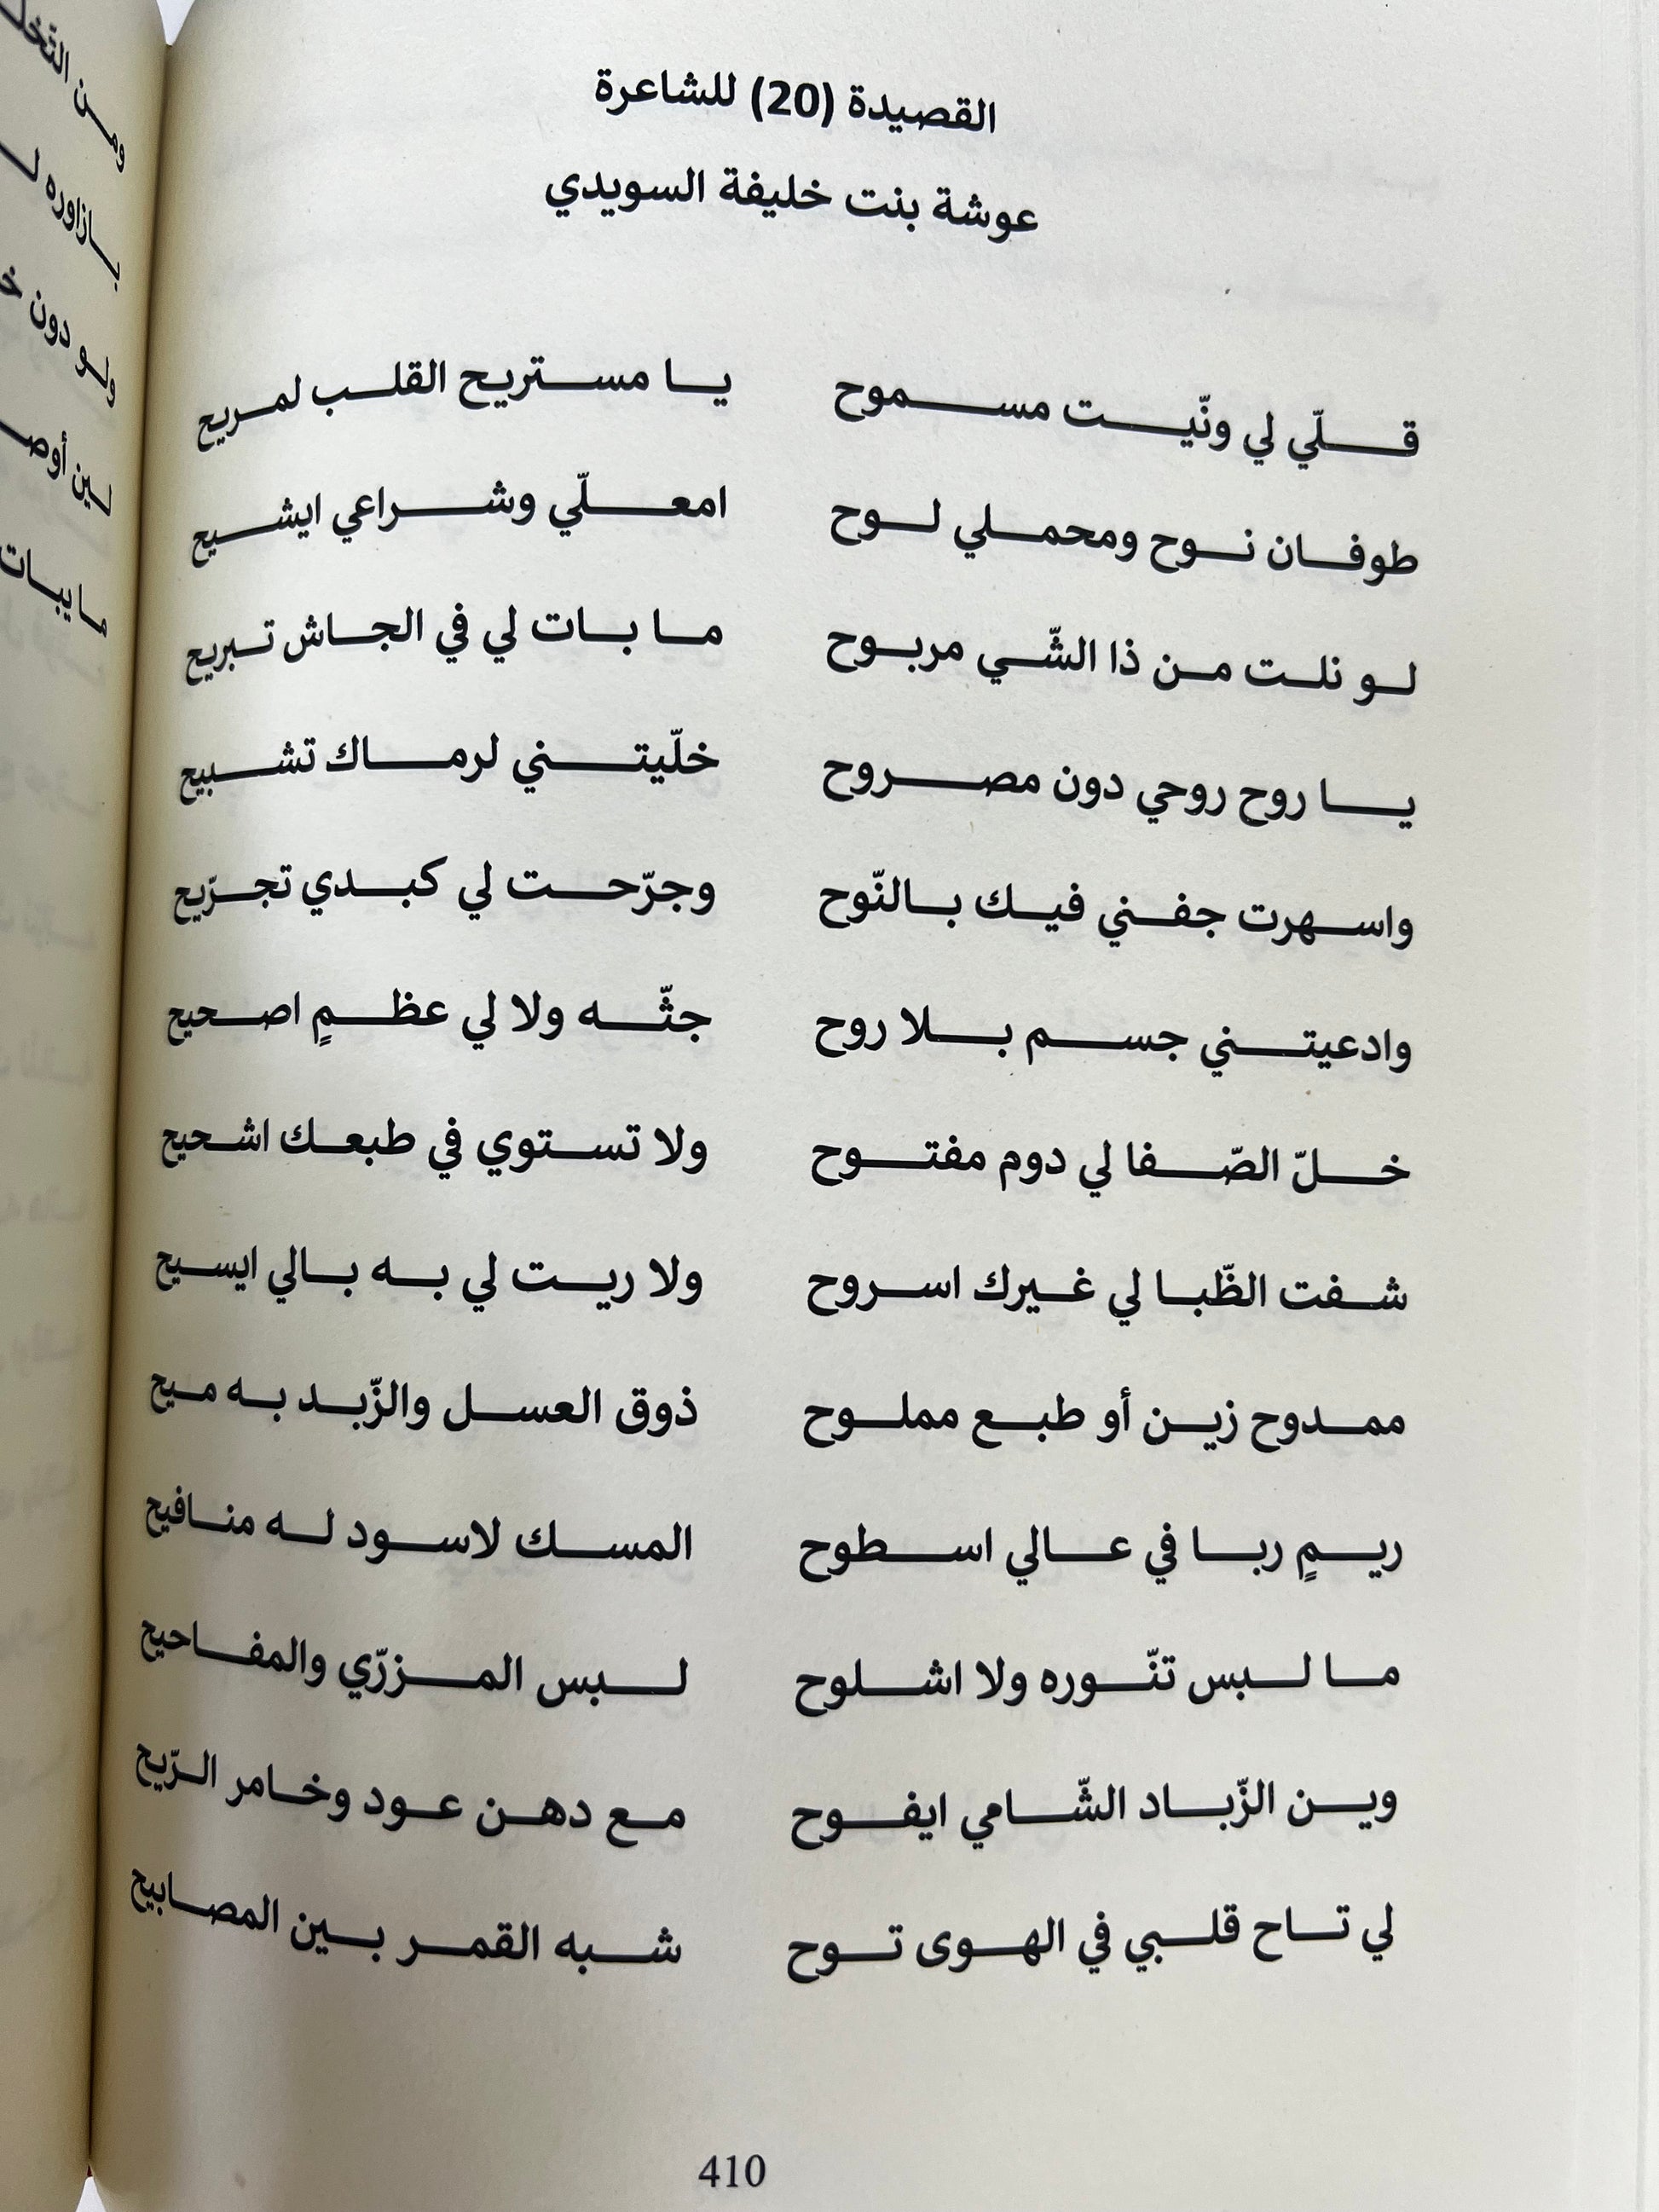 القصيدة (20) للشاعرة
عوشة بنت خليفة السويدي
قلّي لي ونّيت مسموح يا مستريح القلب لمريح
طوفان نوح ومحملي لوح امعلّي وشراعي ايشيح
لو نلت من ذا الشّي مربوح ما بات لي في الجاش تبريح
يا روح روحي دون مصروح خلّيتني لرماك تشبيح
واسهرت جفني فيك بالنّوح وجرّحت لي كبدي تجرّيح
وادعيتني جسم بلا روح جثّه ولا لي عظمٍ اصحيح
خلّ الصّفا لي دوم مفتوح ولا تستوي في طبعك اشحيح
شفت الظّبا لي غيرك اسروح ولا ريت لي به بالي ايسيح
ممدوح زين أو طبع مملوح ذوق العسل والزّبد به ميح
ريمٍ ربا في عالي اسطوح المسك لاسود له منافيح
ما لبس تنّوره ولا اشلوح لبس المزرّي والمفاحيح
وين الزّباد الشّامي ايفوح مع دهن عود وخامر الرّيح
لي تاح قلبي في الهوى توح شبه القمر بين المصابيح
410
ومن
بازاوره
ولو دون
لين
مايبات